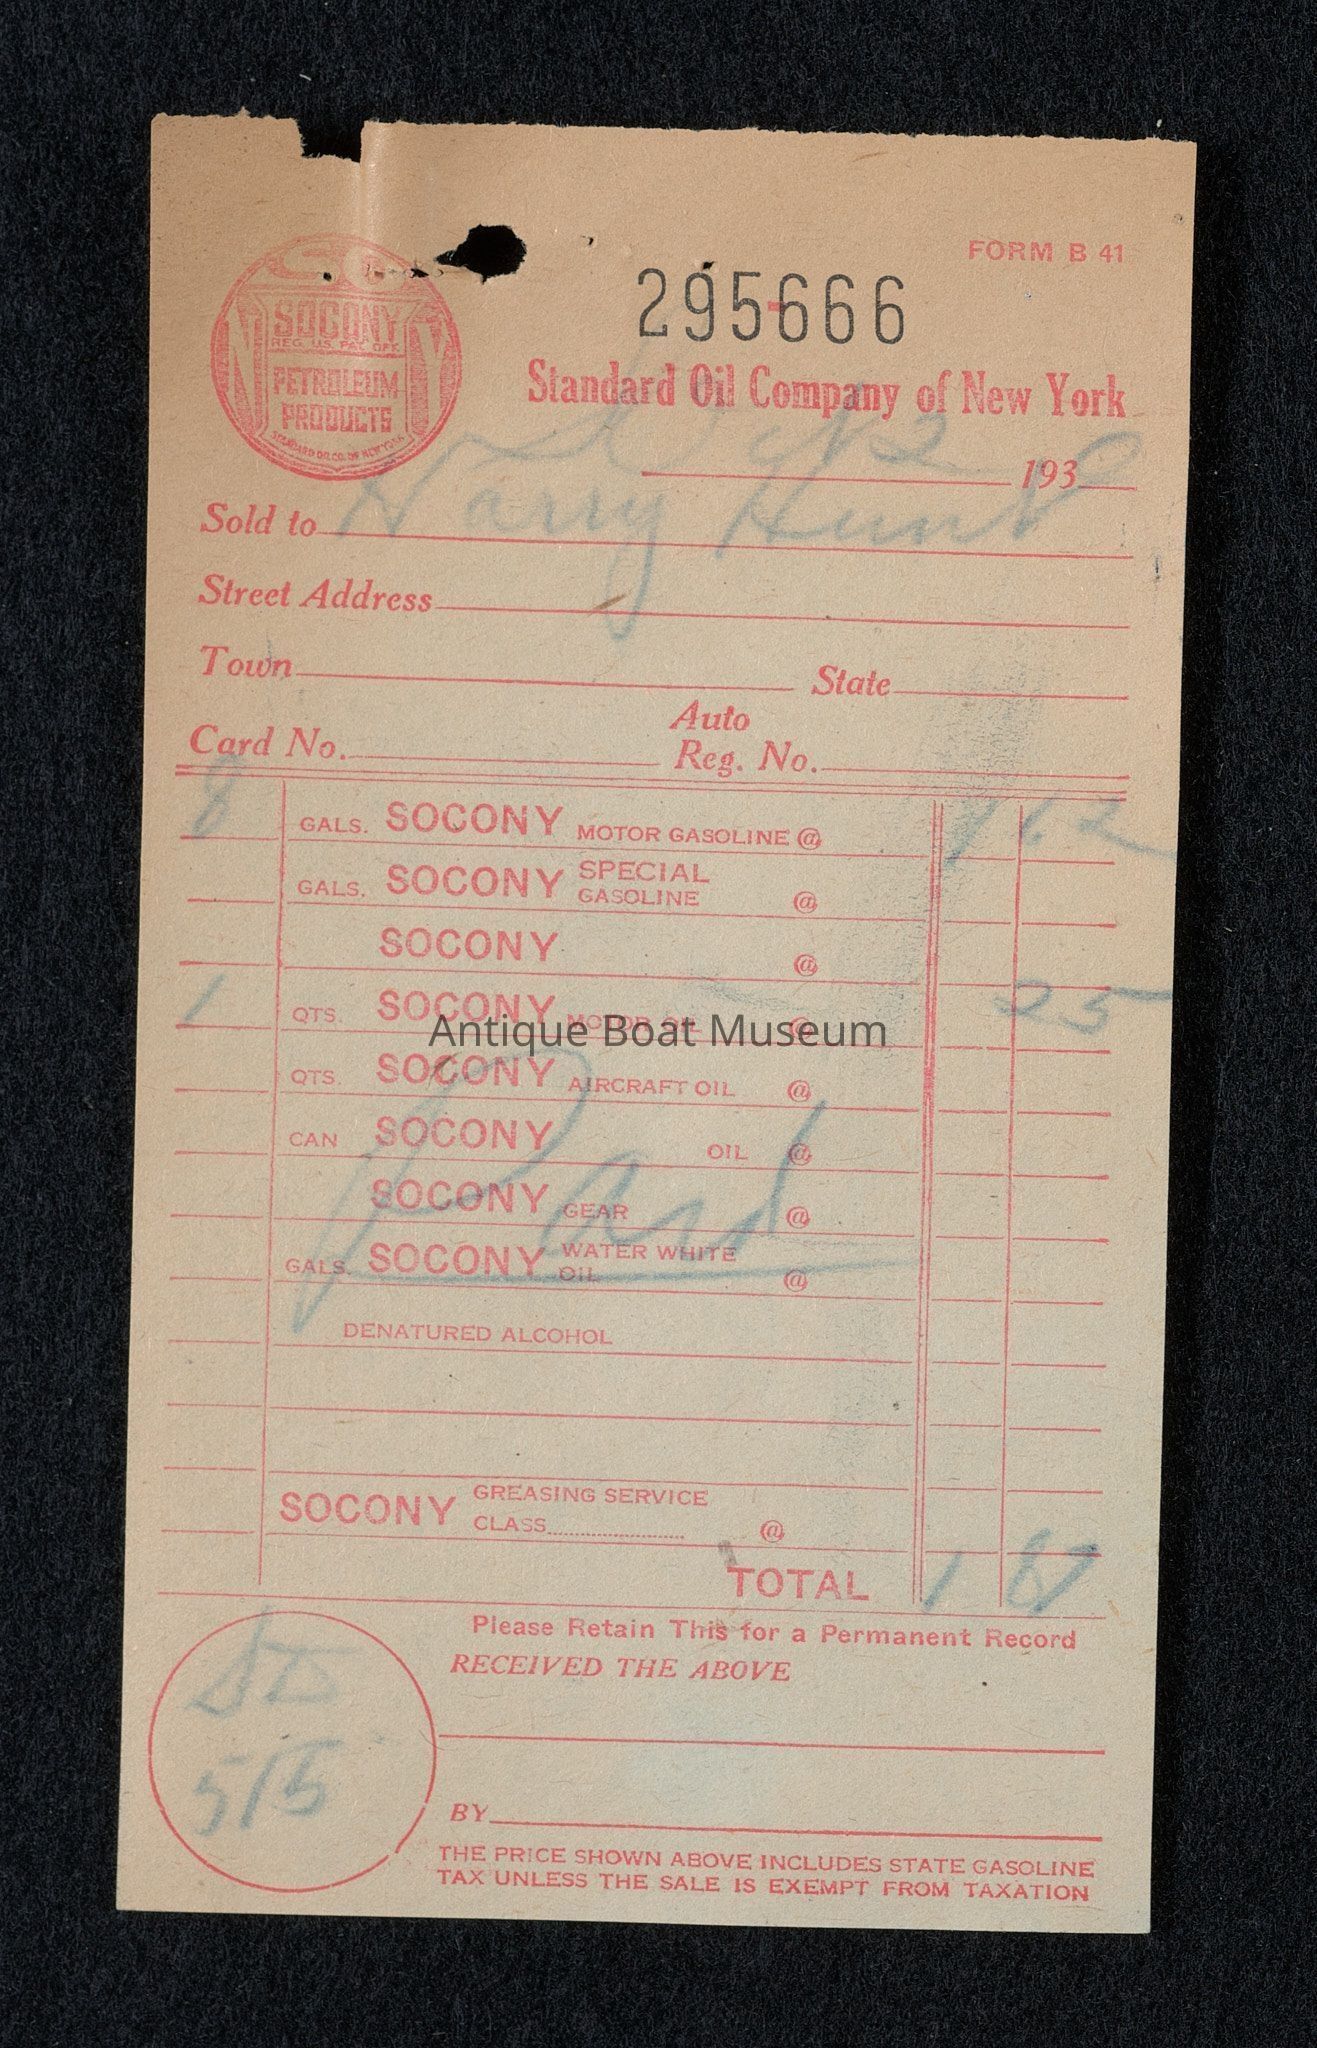 FORM B 41
295666
SOCONY
REG. U.S. PAT. OFF.
PETROLEUM
PRODUCTS
STANDARD OIL CO. OF NEW YORK
Standard Oil Company of New York
193
Sold to Harry Hunt
Street Address
Town State
Card No. Auto Reg. No.
8 GALS. SOCONY MOTOR GASOLINE @ 1 62
GALS. SOCONY SPECIAL GASOLINE @
SOCONY @
1 QTS. SOCONY MOTOR OIL @ 25
Antique Boat Museum
QTS. SOCONY AIRCRAFT OIL @
CAN SOCONY OIL @
SOCONY GEAR @
Paid
GALS. SOCONY WATER WHITE OIL @
DENATURED ALCOHOL
SOCONY GREASING SERVICE
CLASS @
TOTAL 1 87
Please Retain This for a Permanent Record
RECEIVED THE ABOVE
515
BY
THE PRICE SHOWN ABOVE INCLUDES STATE GASOLINE
TAX UNLESS THE SALE IS EXEMPT FROM TAXATION